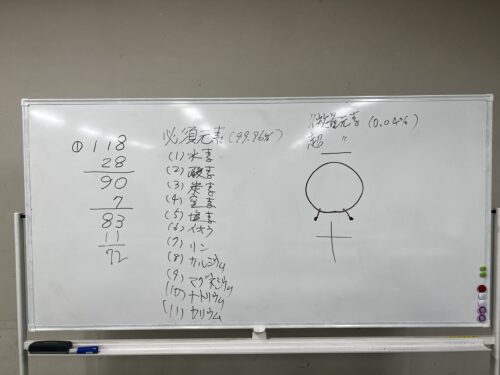 ① 118
28
90
7
83
11
72
必須元素(99.96%)
(1) 水素
(2) 酸素
(3) 炭素
(4) 窒素
(5) 塩素
(6) イオウ
(7) リン
(8) カルシウム
(9) マグネシウム
(10) ナトリウム
(11) カリウム
微量元素(0.04%)
超 〃